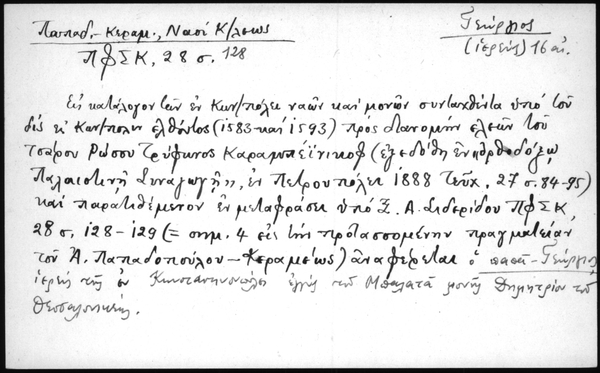 Παπαδ.- Κεραμ., Ναοί Κ/λεως
ΠΦΣΚ, 28 σ. 128
Γεώργιος
(ἱερεύς) 16 αἰ.
Εἰς κατάλογον τῶν ἐν Κων/πόλει ναῶν καί μονῶν συνταχθέντα ὑπό τοῦ
δίς εἰς Κων/πολιν ἐλθόντος (1583 καί 1593) πρός διανομήν ἐλεῶν τοῦ
τσάρου Ρώσου Τρύφωνος Καραμπέϊνικοφ (ἐξεδόθη ἐν «Ὀρθοδόξῳ
Παλαιστινῇ Συναγωγῇ», ἐν Πετρουπόλει 1888 τεῦχ. 27 σ. 84-95)
καί παρατιθέμενον ἐν μεταφράσει ὑπό Ξ. Α. Σιδερίδου ΠΦΣΚ,
28 σ. 128 - 129 (= σημ. 4 εἰς τήν προτασσομένην πραγματείαν
τοῦ Ἀ. Παπαδοπούλου - Κεραμέως) ἀναφέρεται ὁ παπᾶ - Γεώργιος,
ἱερεύς τῆς ἐν Κωνσταντινουπόλει ἐγγύς τοῦ Μπαλατᾶ μονῆς Δημητρίου τοῦ
Θεσσαλονικέως.